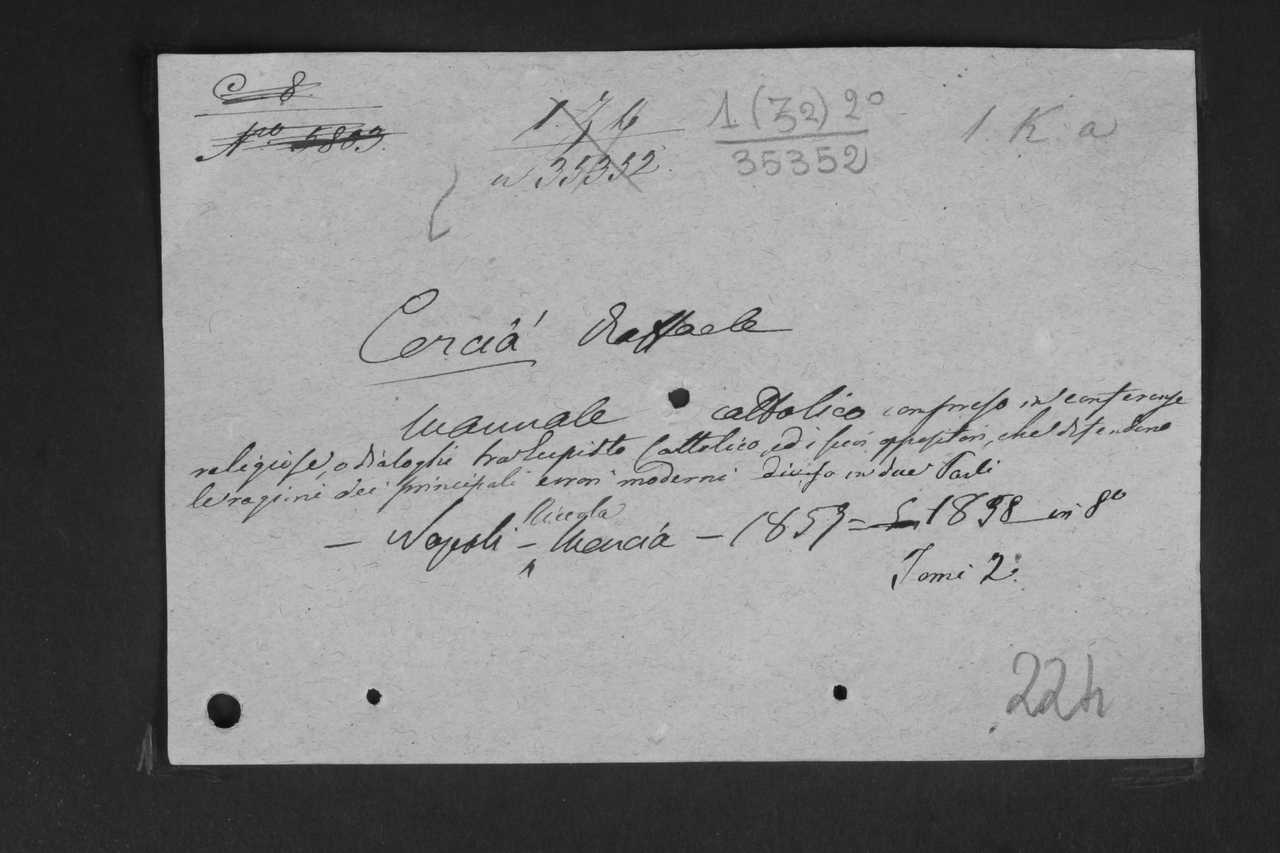 C 8
Nro 5803.
1. 7 6
n 35352.
1 (72) 2º
35352
1. K. a
Cercià Raffaele
Manuale cattolico compreso in conferenze
religiose, o dialoghi tra Cattolico, ed i suoi oppositori, che difendono
le ragioni dei principali errori moderni diviso in due Parti
Nicola
— Napoli – Mencià – 1857 = 1858 in 8º
Tomi 2.
224